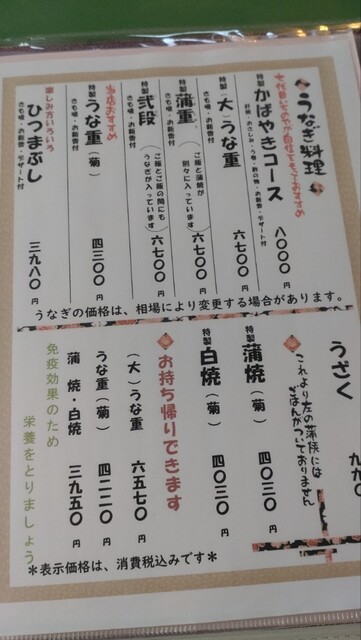 うなぎ料理
七代目いそのやが自信をもっておすすめ
特製 かばやきコース 八〇〇〇円
特製（大）うな重 六七〇〇円
きも吸・お新香付
特製 蒲重（ご飯と蒲焼が別々に入っています） 六七〇〇円
きも吸・お新香付
特製 弐段（ご飯とご飯の間にもうなぎが入っています） 六七〇〇円
きも吸・お新香付
当店おすすめ
特製 うな重（菊） 四三〇〇円
きも吸・お新香付
楽しみ方いろいろ
ひつまぶし 三九八〇円
きも吸・お新香・デザート付
うなぎの価格は、相場により変更する場合があります。
うざく
これより左の蒲焼には
ごはんがついておりません
特製 蒲焼（菊） 四〇三〇円
特製 白焼（菊） 四〇三〇円
お持ち帰りできます
（大）うな重 六五七〇円
うな重（菊） 四二二〇円
蒲焼・白焼 三九五〇円
免疫効果のため
栄養をとりましょう
＊表示価格は、消費税込みです＊